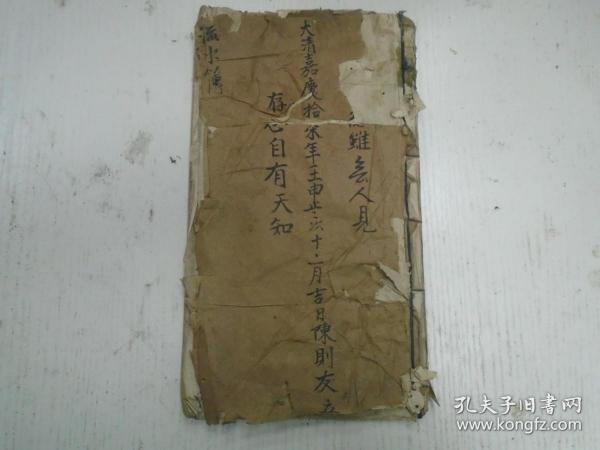 雖無人見
大清嘉慶拾柒年壬申歲次十二月吉日陳則友立
存心自有天知
流水簿
孔夫子旧书网
www.kongfz.com